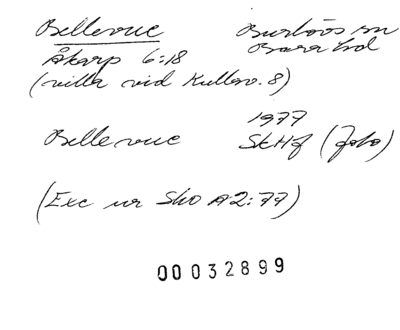 Bellevue Burlövs sn
Åkarp 6:18 Bara hd
(villa vid Kullav. 8)
1977
Bellevue SkHf (foto)
(Exc ur Sho A2:77)
00032899